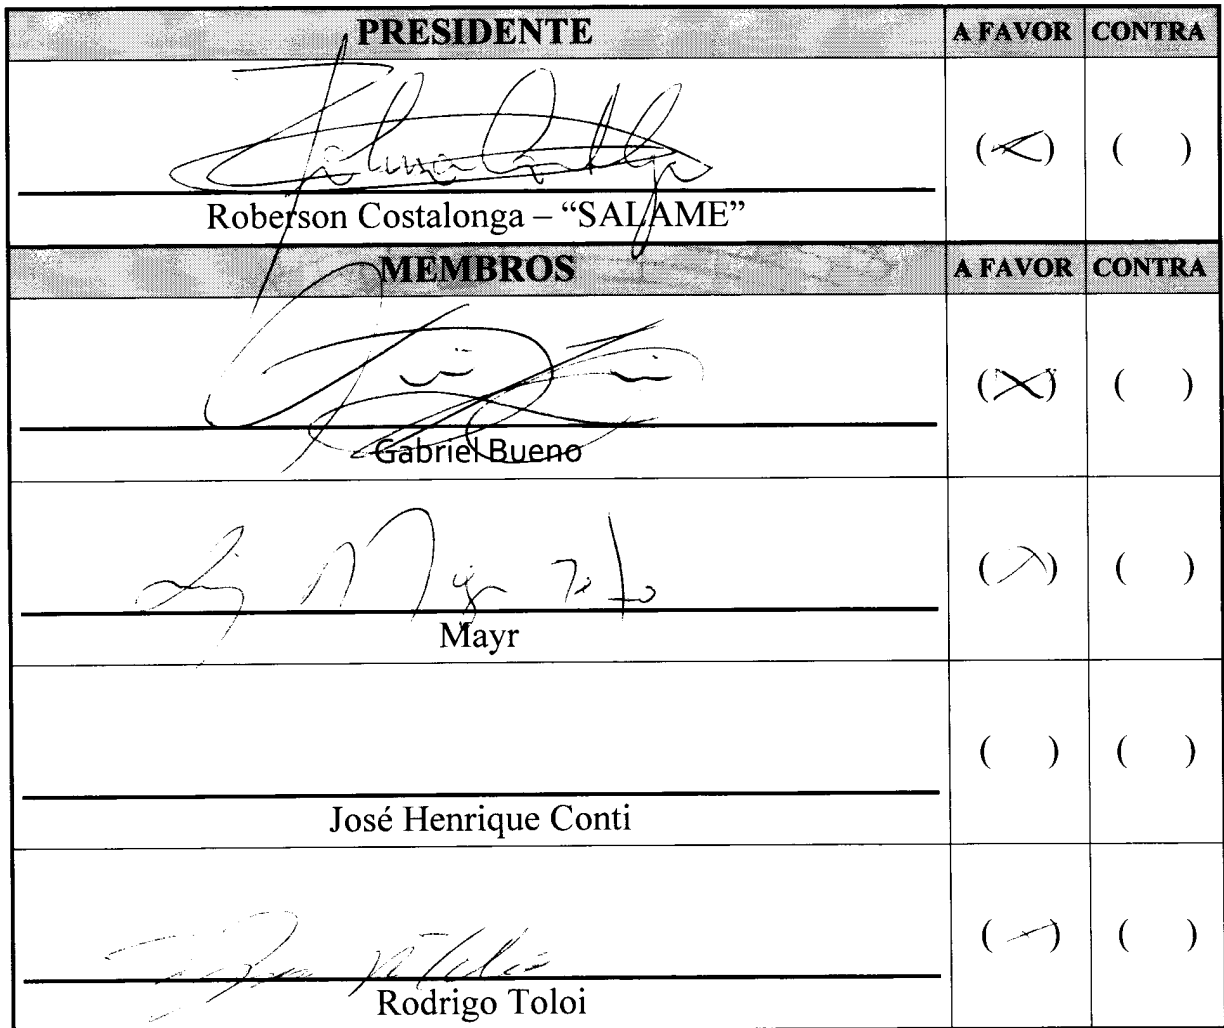 PRESIDENTE A FAVOR CONTRA
( ) ( )
Roberson Costalonga – “SALAME”
MEMBROS A FAVOR CONTRA
(X) ( )
Gabriel Bueno
( ) ( )
Mayr
( ) ( )
José Henrique Conti
( ) ( )
Rodrigo Toloi